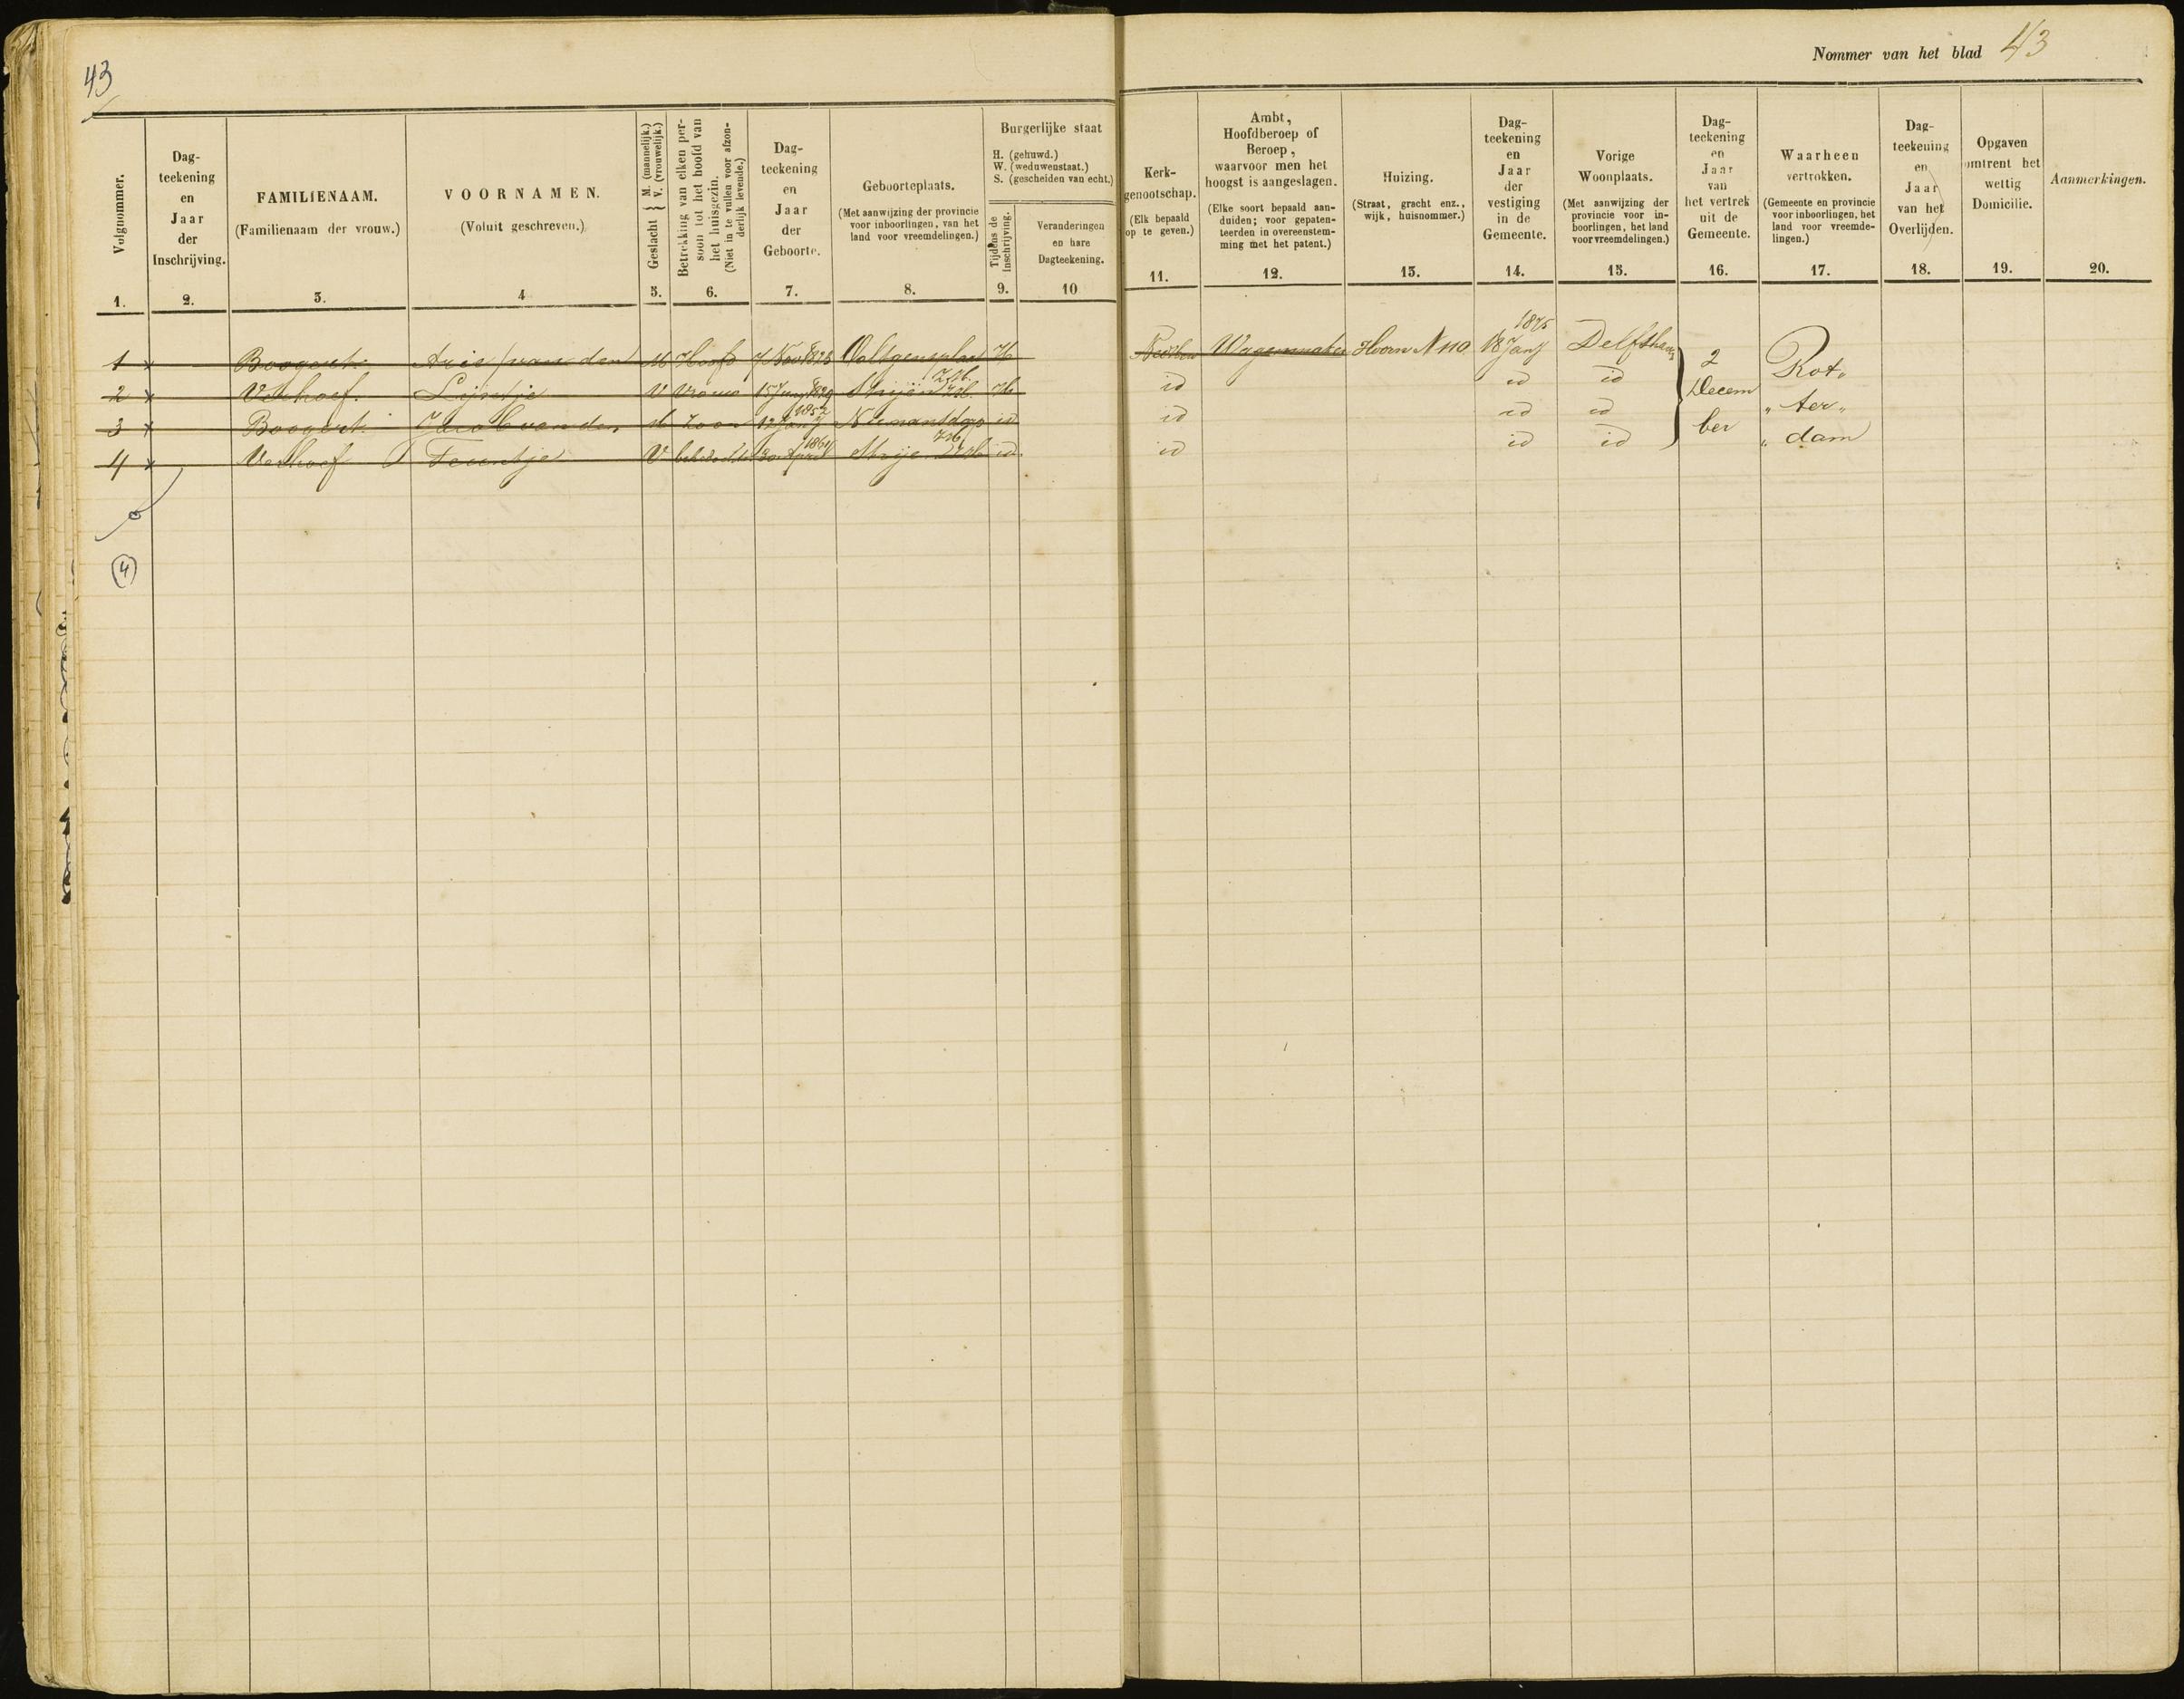 43
Nommer van het blad 43
Volgnommer.
1.
Dag-
teekening
en
Jaar
der
Inschrijving.
2.
FAMILIENAAM.
(Familienaam der vrouw.)
3.
VOORNAMEN.
(Voluit geschreven.)
4
Geslacht { M. (mannelijk.)
V. (vrouwelijk.)
5.
Betrekking van elken per-
soon tot het hoofd van
het huisgezin.
(Niet in te vullen voor afzon-
derlijk levende.)
6.
Dag-
teekening
en
Jaar
der
Geboorte.
7.
Geboorteplaats.
(Met aanwijzing der provincie
voor inboorlingen, van het
land voor vreemdelingen.)
8.
Burgerlijke staat
H. (gehuwd.)
W. (weduwenstaat.)
S. (gescheiden van echt.)
Tijdens de
Inschrijving.
9.
Veranderingen
en hare
Dagteekening.
10
Kerk-
genootschap.
(Elk bepaald
op te geven.)
11.
Ambt,
Hoofdberoep of
Beroep,
waarvoor men het
hoogst is aangeslagen.
(Elke soort bepaald aan-
duiden; voor gepaten-
teerden in overeenstem-
ming met het patent.)
12.
Huizing.
(Straat, gracht enz.,
wijk, huisnommer.)
13.
Dag-
teekening
en
Jaar
der
vestiging
in de
Gemeente.
14.
Vorige
Woonplaats.
(Met aanwijzing der
provincie voor in-
boorlingen, het land
voor vreemdelingen.)
15.
Dag-
teekening
en
Jaar
van
het vertrek
uit de
Gemeente.
16.
Waarheen
vertrokken.
(Gemeente en provincie
voor inboorlingen, het
land voor vreemde-
lingen.)
17.
Dag-
teekening
en
Jaar
van het
Overlijden.
18.
Opgaven
omtrent het
wettig
Domicilie.
19.
Aanmerkingen.
20.
1 x Boogert Arie / van den M Hoofd 7 Nov 1828 H Wagenmaker Hoorn N 110 18 Janij 1875 Delfshav 2 Rot„
2 x Verhoef. Lijntje V Vrouw 1829 Strijen Z.H. H id id id Decem „ ter „
3 x Boogert Jacob van den M Zoon 12 Janij 1852 id id id id ber „ dam
4 x Verhoef Teuntje V 30 April 1864 Strijen Z.H. id id id id
4